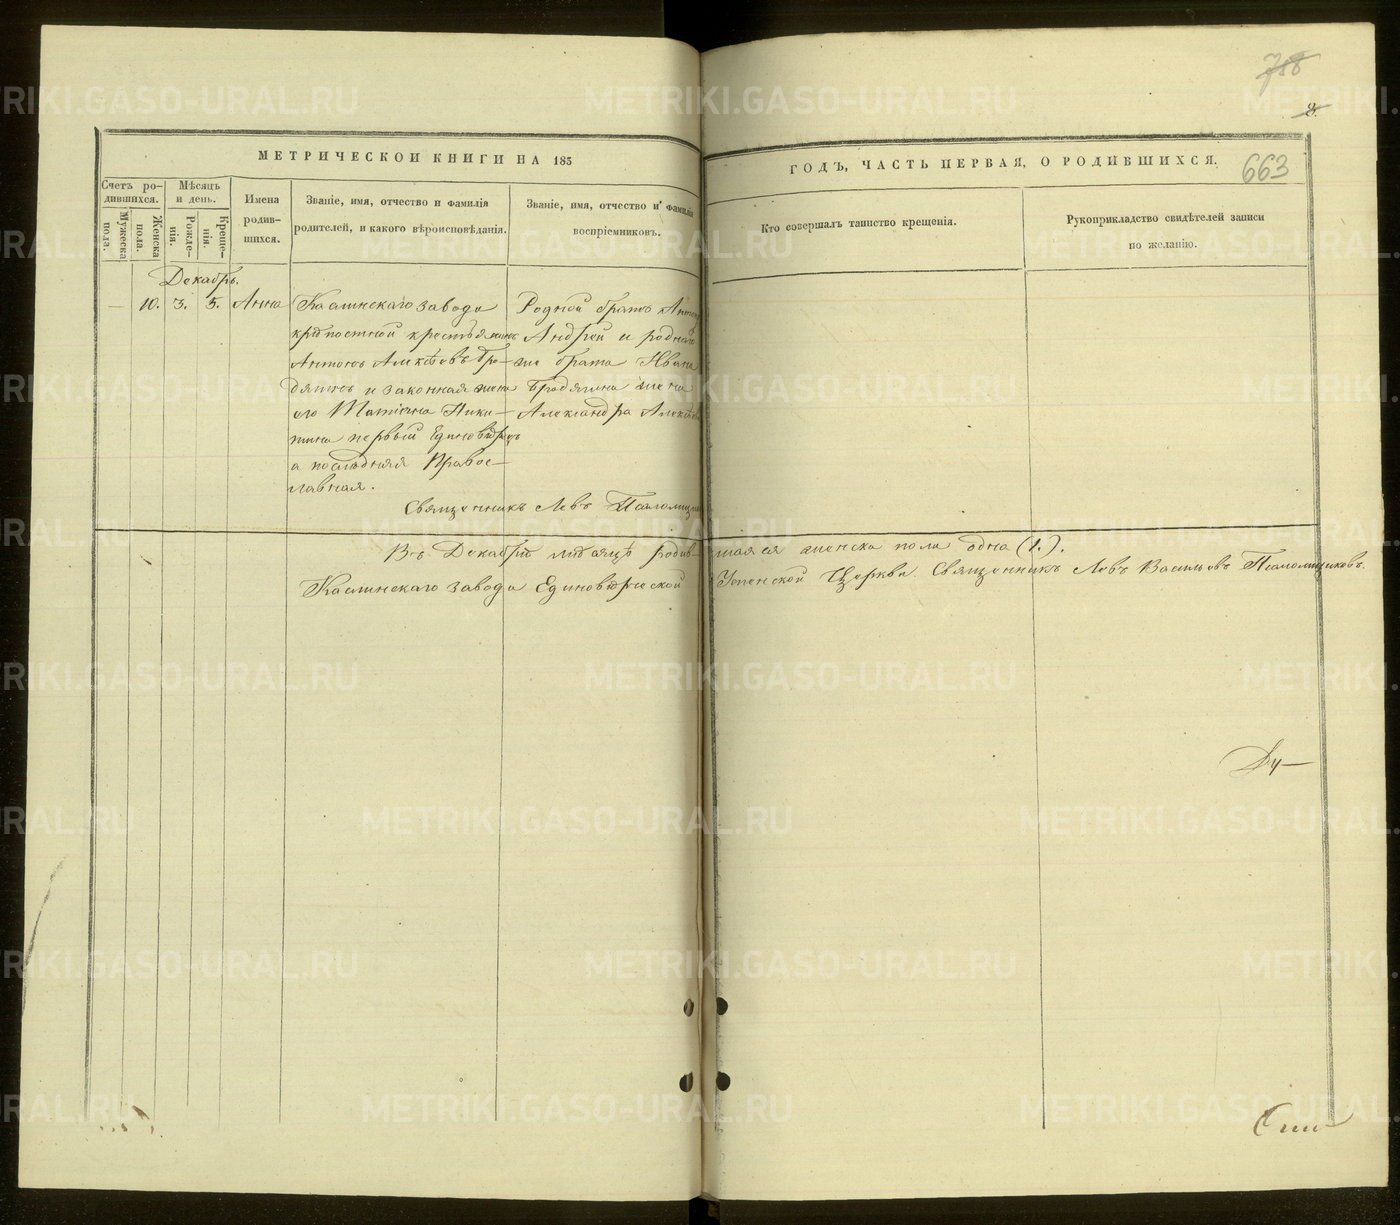 718
8.
663
МЕТРИЧЕСКОЙ КНИГИ НА 185
ГОДЪ, ЧАСТЬ ПЕРВАЯ, О РОДИВШИХСЯ.
Счетъ ро-
дившихся.
Мужеска
пола.
Женска
пола.
Мѣсяцъ
и день.
Рожде-
нія.
Креще-
нія.
Имена
родив-
шихся.
Званіе, имя, отчество и фамилія
родителей, и какого вѣроисповѣданія.
Званіе, имя, отчество и фамилія
воспріемниковъ.
Кто совершалъ таинство крещенія.
Рукоприкладство свидѣтелей записи
по желанію.
Декабрь.
— 10. 3. 5. Анна
Каслинскаго завода
крѣпостной крестьянинъ
Антонъ Алексѣевъ Бро-
дягинъ и законная жена
его Татіана Ники-
тина первый Единовѣрецъ
а послѣдняя Право-
славная.
Родной братъ
Андрей и роднаго
же брата Ивана
Бродягина жена
Александра
Священникъ Левъ
Въ Декабрѣ мѣсяцѣ родив-
шаяся женска пола одна (1.).
Каслинскаго завода Единовѣрческой
Успенской Церкви Священникъ Левъ Васильевъ Паломщиковъ.
METRIKI.GASO-URAL.RU